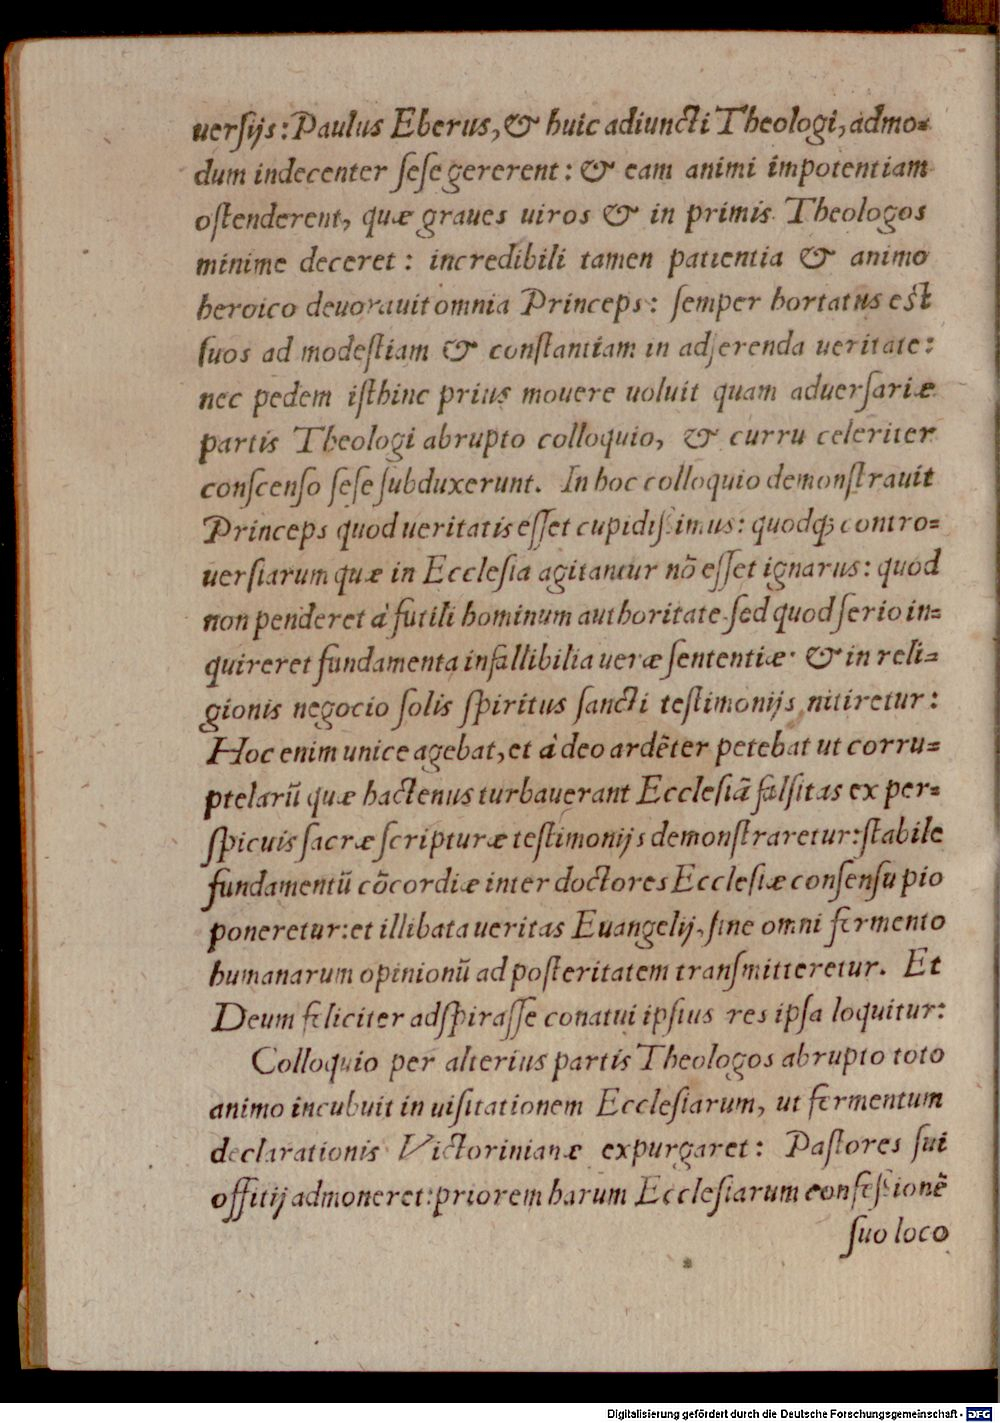 uerſijs: Paulus Eberus, & huic adiuncti Theologi, admo=
dum indecenter ſeſe gererent: & eam animi impotentiam
oſtenderent, quæ graues uiros & in primis Theologos
minime deceret: incredibili tamen patientia & animo
heroico deuorauit omnia Princeps: ſemper hortatus eſt
ſuos ad modeſtiam & conſtantiam in adſerenda ueritate:
nec pedem iſthinc prius mouere uoluit quam aduerſariæ
partis Theologi abrupto colloquio, & curru celeriter
conſcenſo ſeſe ſubduxerunt. In hoc colloquio demonſtrauit
Princeps quod ueritatis eſſet cupidiſsimus: quodq́; contro=
uerſiarum quæ in Eccleſia agitantur nõ eſſet ignarus: quod
non penderet à futili hominum authoritate ſed quod ſerio in=
quireret fundamenta infallibilia ueræ ſententiæ· & in reli=
gionis negocio ſolis ſpiritus ſancti teſtimonijs nitiretur:
Hoc enim unice agebat, et àdeo ardẽter petebat ut corru=
ptelarũ quæ hactenus turbauerant Eccleſiã falſitas ex per=
ſpicuis ſacræ ſcripturæ teſtimonijs demonſtraretur: ſtabile
fundamentũ cõcordiæ inter doctores Eccleſiæ conſenſu pio
poneretur: et illibata ueritas Euangelij, ſine omni fermento
humanarum opinionũ ad poſteritatem tranſmitteretur. Et
Deum feliciter adſpiraſſe conatui ipſius res ipſa loquitur:
Colloquio per alterius partis Theologos abrupto toto
animo incubuit in uiſitationem Eccleſiarum, ut fermentum
declarationis Victorinianæ expurgaret: Paſtores ſui
offitij admoneret: priorem harum Eccleſiarum confeſsionẽ
ſuo loco
Digitalisierung gefördert durch die Deutsche Forschungsgemeinschaft - DFG